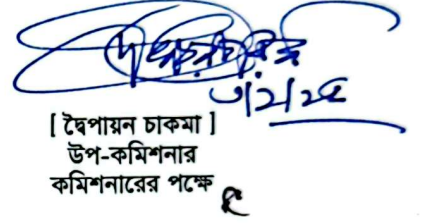 ৩/২/২৫
[ দ্বৈপায়ন চাকমা ]
উপ-কমিশনার
কমিশনারের পক্ষে